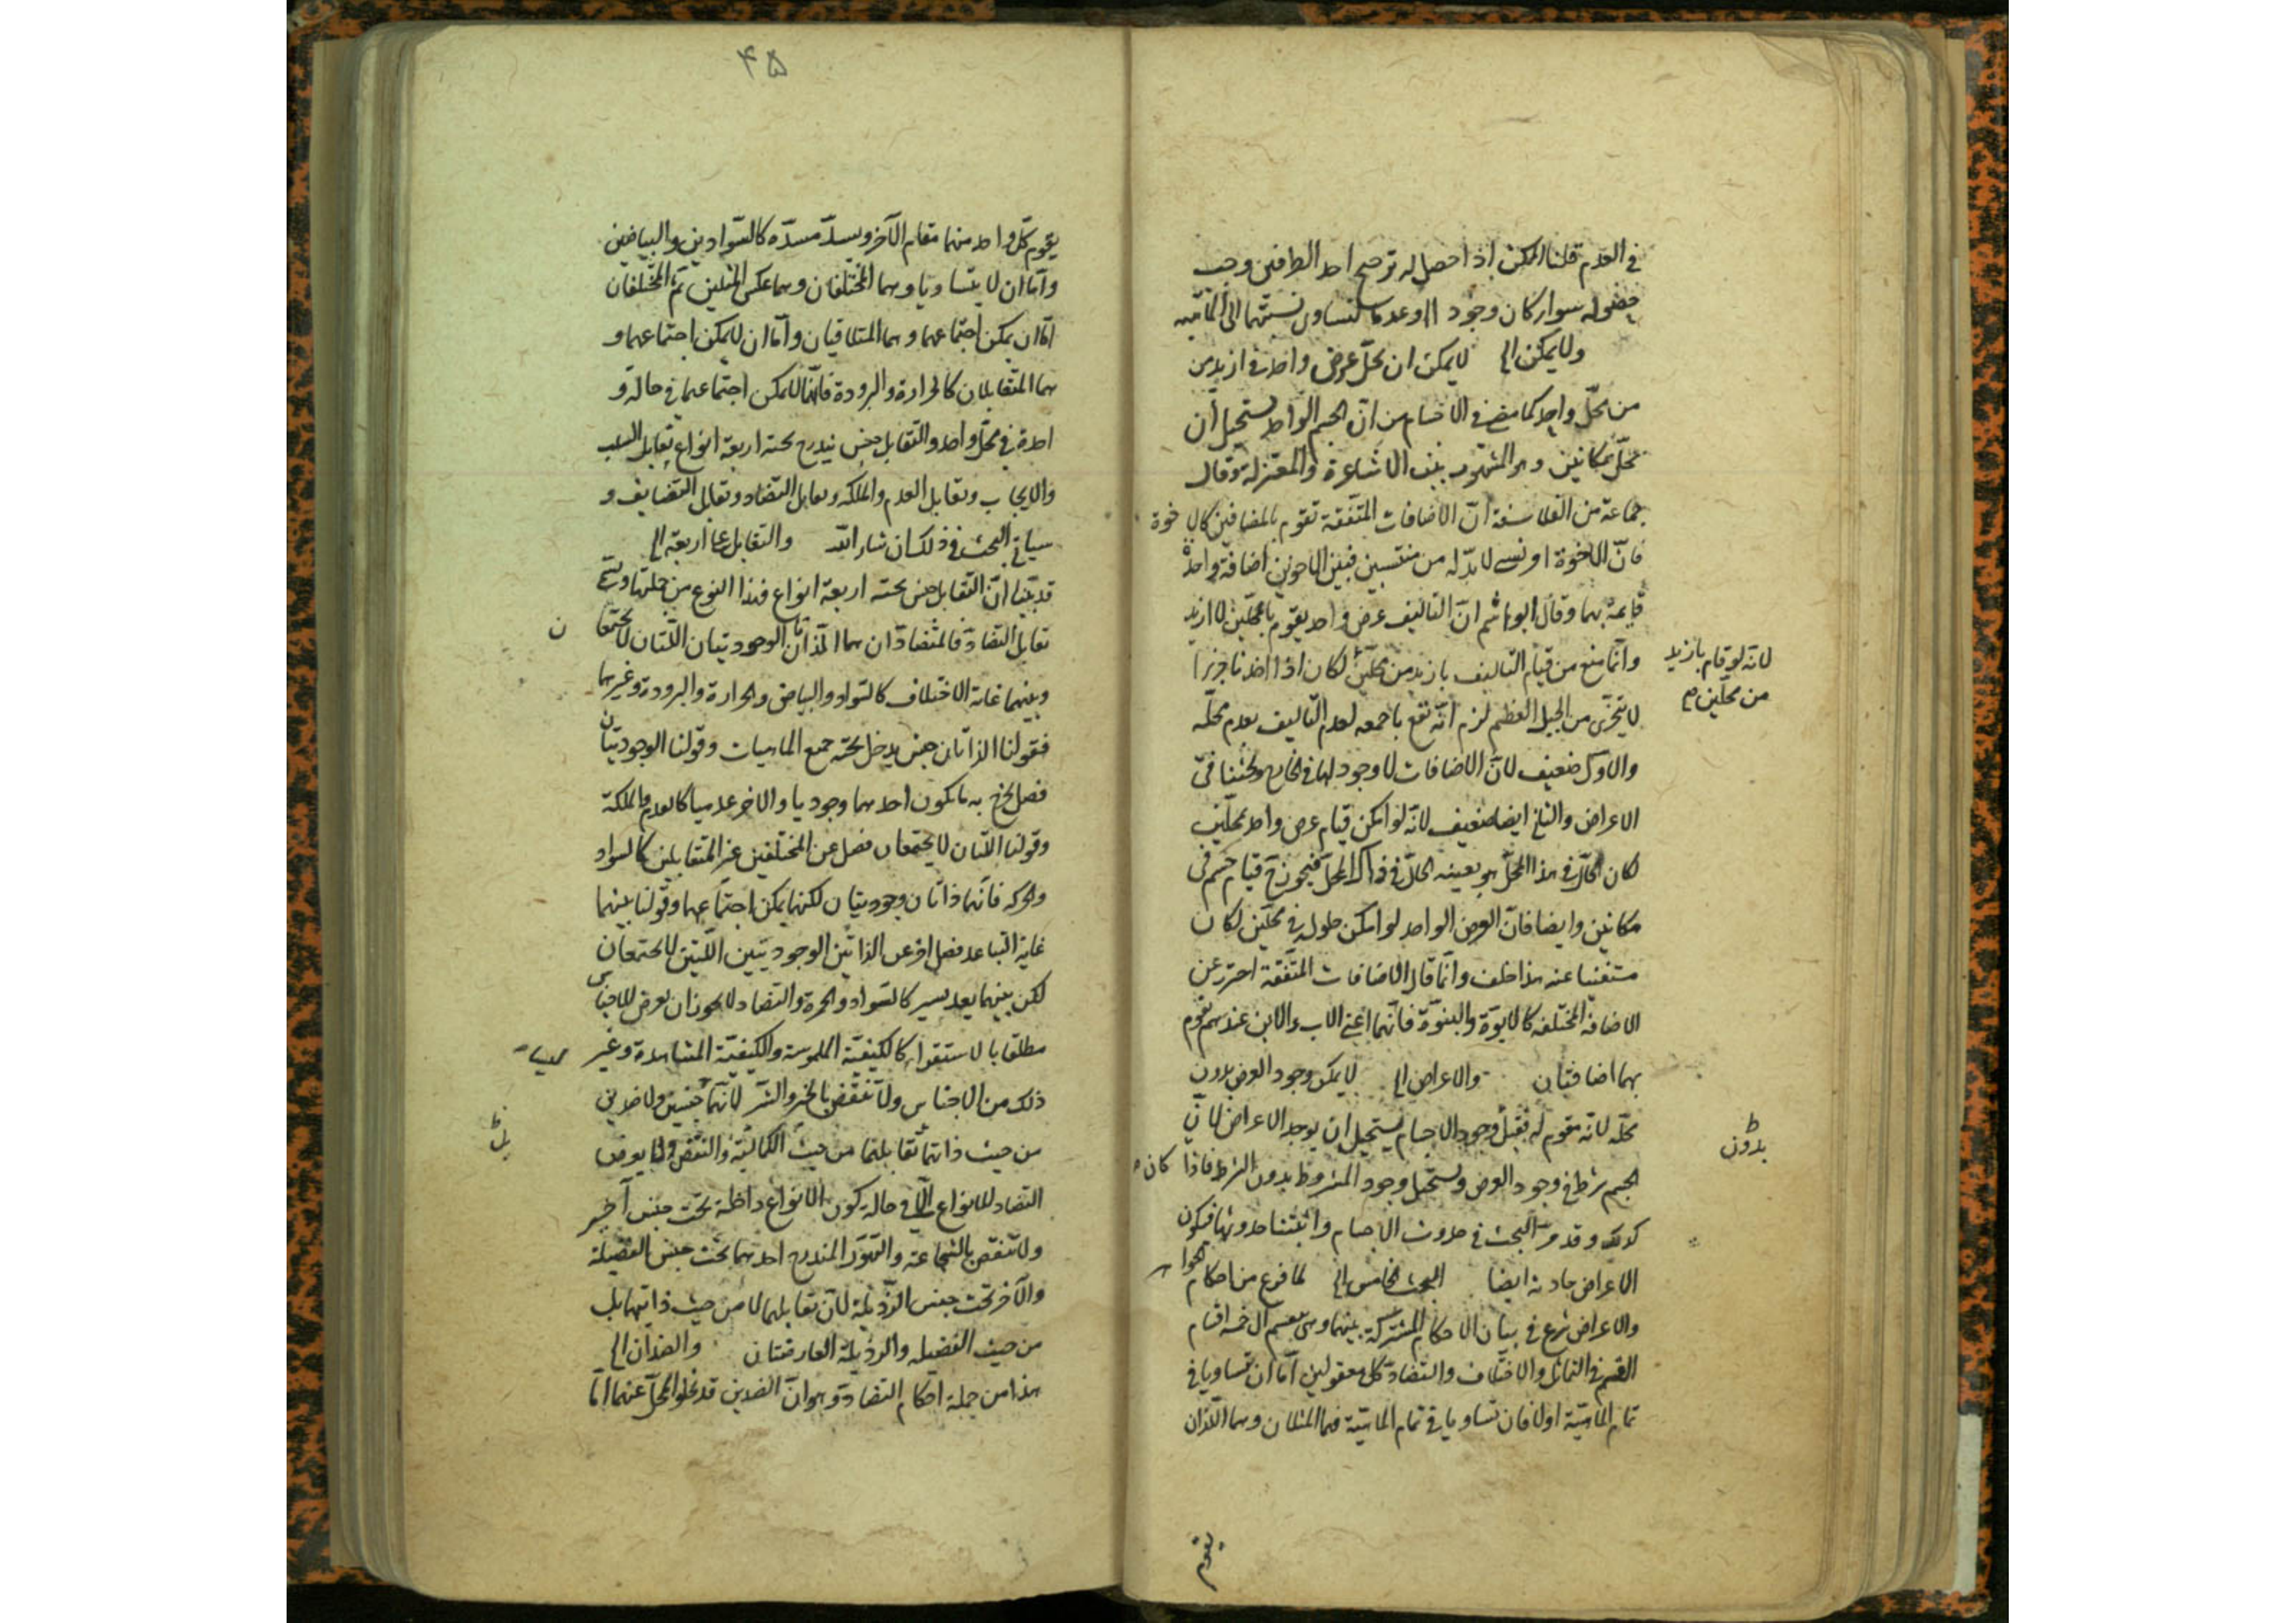 في العدم قلنا الممكن اذا حصل له ترجيح احد الطرفين وجب
حصوله سواء كان وجودا او عدما لتساوى نسبتهما الى الماهية
ولا يمكن الخ لا يمكن ان يحل عرض واحد في ازيد من
من محل واحد كما مضى في الاجسام من ان الجسم الواحد يستحيل أن
يحل بمكانين وهو المشهور بين الاشاعرة والمعتزلة وقال
جماعة من الفلاسفة انّ الاضافات المتفقة تقوم بالمضافين كالاخوة
فانّ الاخوة لابدّ له من منتسبين فبين الاخوين اضافة واحدة
قايمة بهما وقال ابو هاشم انّ التاليف عرض واحد يقوم بالمحلين لا ازيد
وانّما منع من قيام التاليف بازيد من محلين لكان اذا اخذنا جزءا
لانه لو قام بازيد
من محلين
لا يتجزى من الجبل العظيم لزم انّه تقع باجمعه لعدم التاليف بعدم محلّه
والاول ضعيف لانّ الاضافات لا وجود لها في الخارج وبحثنا في
الاعراض والثاني ايضا ضعيف لانّه لو امكن قيام عرض واحد بمحلين
لكان الحالّ في هذا المحلّ هو بعينه الحالّ في ذاك المحلّ فيجوز ح قيام جسم في
مكانين وايضا فانّ العرض الواحد لو امكن حلوله في محلّين لكان
مستغنيا عنه هذا خلف وانّما قال الاضافات المتّفقة احترز عن
الاضافة المختلفة كالابوّة والبنوّة فانّهما اعني الاب والابن عندهم تقوم
بهما اضافتان والاعراض الخ لا يمكن وجود العرض بدون
محلّه لانّه مقوم له فقبل وجود الاجسام يستحيل ان يوجد الاعراض لانّ
بدون
الجسم شرط في وجود العرض ويستحيل وجود المشروط بدون الشرط فاذا كان
كذلك وقد مرّ البحث في حدوث الاجسام واثبتنا حدوثها فيكون
الاعراض حادثة ايضا البحث الخامس الخ لما فرغ من احكام الجواهر
والاعراض شرع في بيان الاحكام المشتركة بينهما وهي ينقسم الى خمسة اقسام
القسم في التماثل والاختلاف والتضادّ كلّ معقولين امّا ان تساويا في
تمام الماهيّة اولا فان تساويا في تمام الماهيّة فهما المثلان وهما اللّذان
يقوم
۴۵
يقوم كلّ واحد منهما مقام الآخر ويسدّ مسدّه كالسّوادين والبياضين
وامّا ان لا يتساويا وهما المختلفان وهما عكس المثلين ثمّ المختلفان
امّا ان يمكن اجتماعهما وهما المتلاقيان وامّا ان لا يمكن اجتماعهما و
هما المتقابلان كالحرارة والبرودة فانّهما لا يمكن اجتماعهما في حالة و
احدة في محلّ واحد والتّقابل جنس يندرج تحته اربعة انواع تقابل السلب
والايجاب وتقابل العدم والملكة وتقابل التضاد وتقابل التضايف و
سياتي البحث في ذلك ان شاء الله والتقابل على اربعة الخ
قد بيّنا انّ التقابل جنس تحته اربعة انواع فهذا النوع من جملتها وتسمى
تقابل التضادّ فالمتضادّان هما الذّاتان الوجوديتان اللّتان لا تجتمعان
وبينهما غاية الاختلاف كالسّواد والبياض والحرارة والبرودة وغيرهما
فقولنا الذاتان جنس يدخل تحته جميع الماهيات وقولنا الوجوديتان
فصل يخرج به ما يكون احدهما وجوديا والآخر عدميا كالعدم والملكة
وقولنا اللّتان لا تجتمعان فصل عن المختلفين غير المتقابلين كالسواد
والحركة فانّهما ذاتان وجوديتان لكنهما يمكن اجتماعهما وقولنا بينهما
غاية التباعد فصل اخر عن الذاتين الوجوديتين اللّتين لا تجتمعان
لكن بينهما بعد يسير كالسّواد والحمرة والتضاد لا يجوز ان يعرض للاجناس
مطلقا بالاستقراء كالكيفيّة الملموسة والكيفيّة المشاهدة وغير
ذلك من الاجناس ولا تنقض بالخير والشرّ لانّهما جنسين ولا ضدين
من حيث ذاتهما تقابلهما من حيث الكمالية والنقص وانما يعرض
بل
التضاد للانواع الّا في حالة كون الانواع داخلة تحت جنس اخير
ولا تنقض بالشجاعة والتهوّر المندرج احدهما تحت جنس الفضيلة
والآخر تحت جنس الرّذيلة لانّ تقابلهما لا من حيث ذاتيهما بل
من حيث الفضيلة والرذيلة العارضتان والضدّان الخ
هذا من جملة احكام التضادّ وهو انّ الضدين قد يخلو المحلّ عنهما امّا